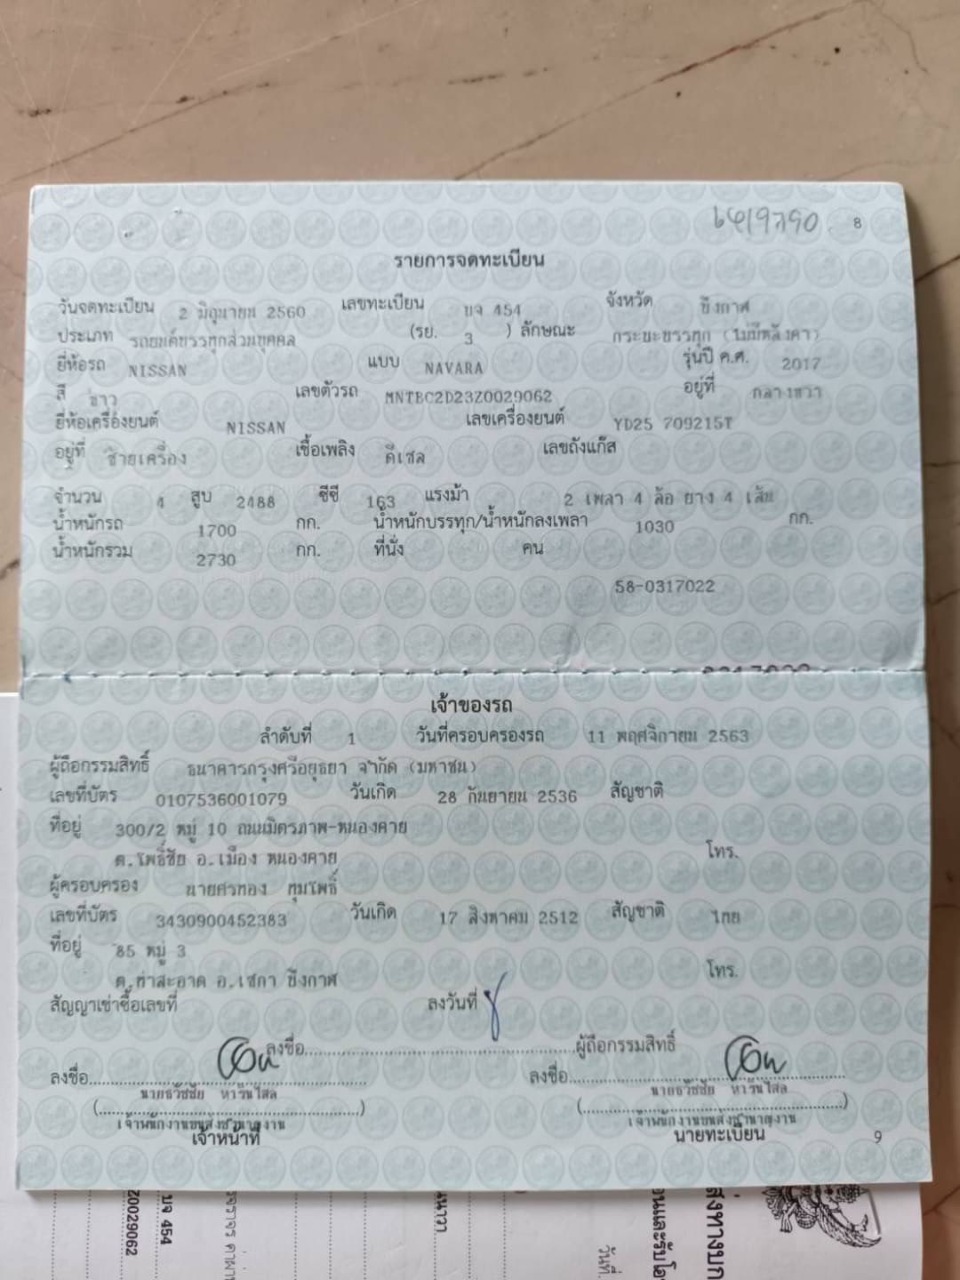 8
รายการจดทะเบียน
วันจดทะเบียน 2 มิถุนายน 2560 เลขทะเบียน บจ 454 จังหวัด บึงกาฬ
ประเภท รถยนต์บรรทุกส่วนบุคคล (รย. 3 ) ลักษณะ กระบะบรรทุก (ไม่มีหลังคา)
ยี่ห้อรถ NISSAN แบบ NAVARA รุ่นปี ค.ศ. 2017
สี ขาว เลขตัวรถ MNTBC2D23Z0029062 อยู่ที่ กลางขวา
ยี่ห้อเครื่องยนต์ NISSAN เลขเครื่องยนต์ YD25 709215T
อยู่ที่ ซ้ายเครื่อง เชื้อเพลิง ดีเซล เลขถังแก๊ส
จำนวน 4 สูบ 2488 ซีซี 163 แรงม้า 2 เพลา 4 ล้อ ยาง 4 เส้น
น้ำหนักรถ 1700 กก. น้ำหนักบรรทุก/น้ำหนักลงเพลา 1030 กก.
น้ำหนักรวม 2730 กก. ที่นั่ง คน
58-0317022
เจ้าของรถ
ลำดับที่ 1 วันที่ครอบครองรถ 11 พฤศจิกายน 2563
ผู้ถือกรรมสิทธิ์ ธนาคารกรุงศรีอยุธยา จำกัด (มหาชน)
เลขที่บัตร 0107536001079 วันเกิด 28 กันยายน 2536 สัญชาติ
ที่อยู่ 300/2 หมู่ 10 ถนนมิตรภาพ-หนองคาย
ต.โพธิ์ชัย อ.เมือง หนองคาย โทร.
ผู้ครอบครอง นายศรทอง ขุมโพธิ์
เลขที่บัตร 3430900452383 วันเกิด 17 สิงหาคม 2512 สัญชาติ ไทย
ที่อยู่ 85 หมู่ 3
ต.ท่าสะอาด อ.เซกา บึงกาฬ โทร.
สัญญาเช่าซื้อเลขที่ ลงวันที่
ลงชื่อ ผู้ถือกรรมสิทธิ์
ลงชื่อ ลงชื่อ
นายธวัชชัย หารันไสล นายธวัชชัย หารันไสล
เจ้าพนักงานขนส่งชำนาญงาน เจ้าพนักงานขนส่งชำนาญงาน
เจ้าหน้าที่ นายทะเบียน 9
Z0029062
บจ 454
วันที่